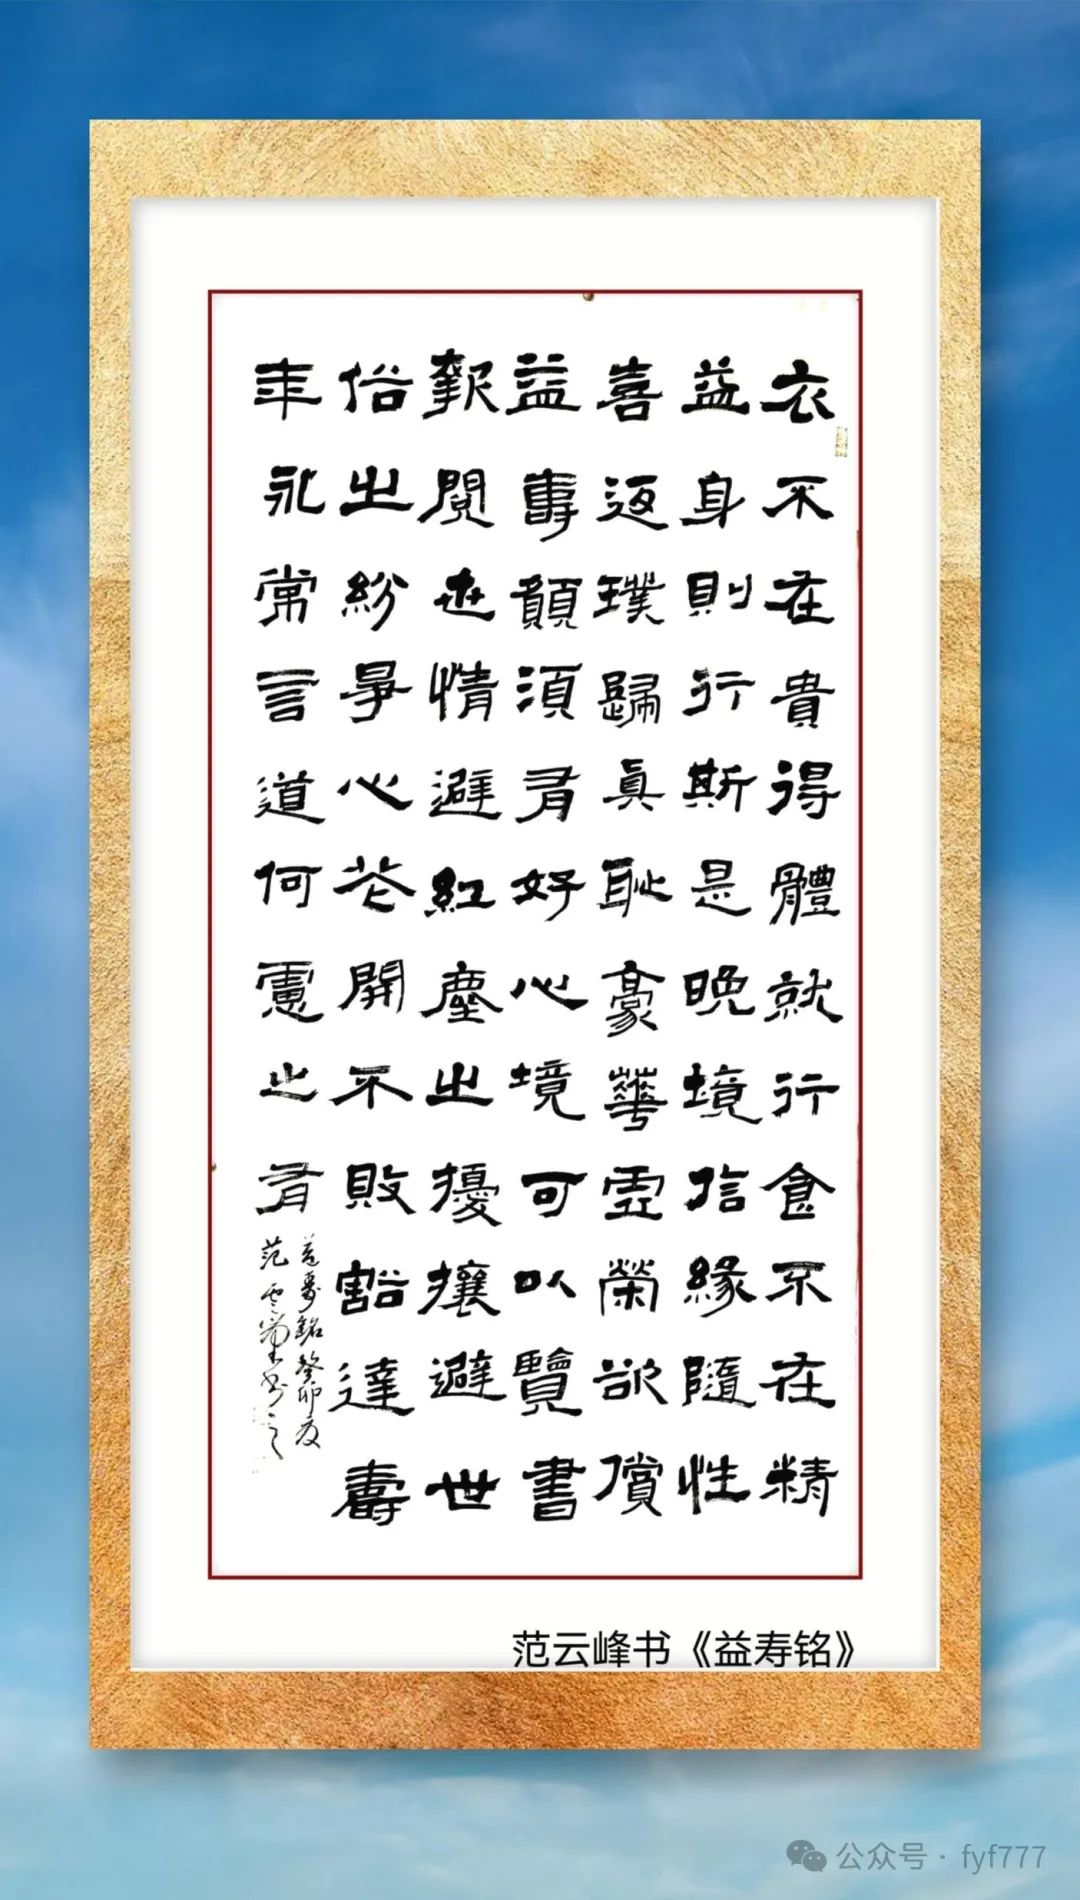 衣不在貴得體就行食不在精
益身則行斯是晚境信緣隨性
喜返璞歸真恥豪華虛榮欲償
益壽願須有好心境可以覽書
報閱世情避紅塵出擾攘避世
俗出紛爭心花開不敗豁達壽
年永常言道何憲之有
益壽銘癸卯夏
范云峰書之
范云峰书《益寿铭》
公众号·fyf777